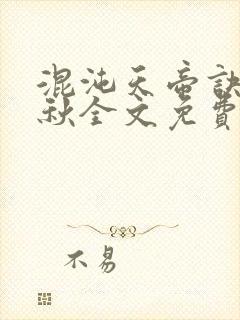 混沌天帝訣
秋全文免費
不易